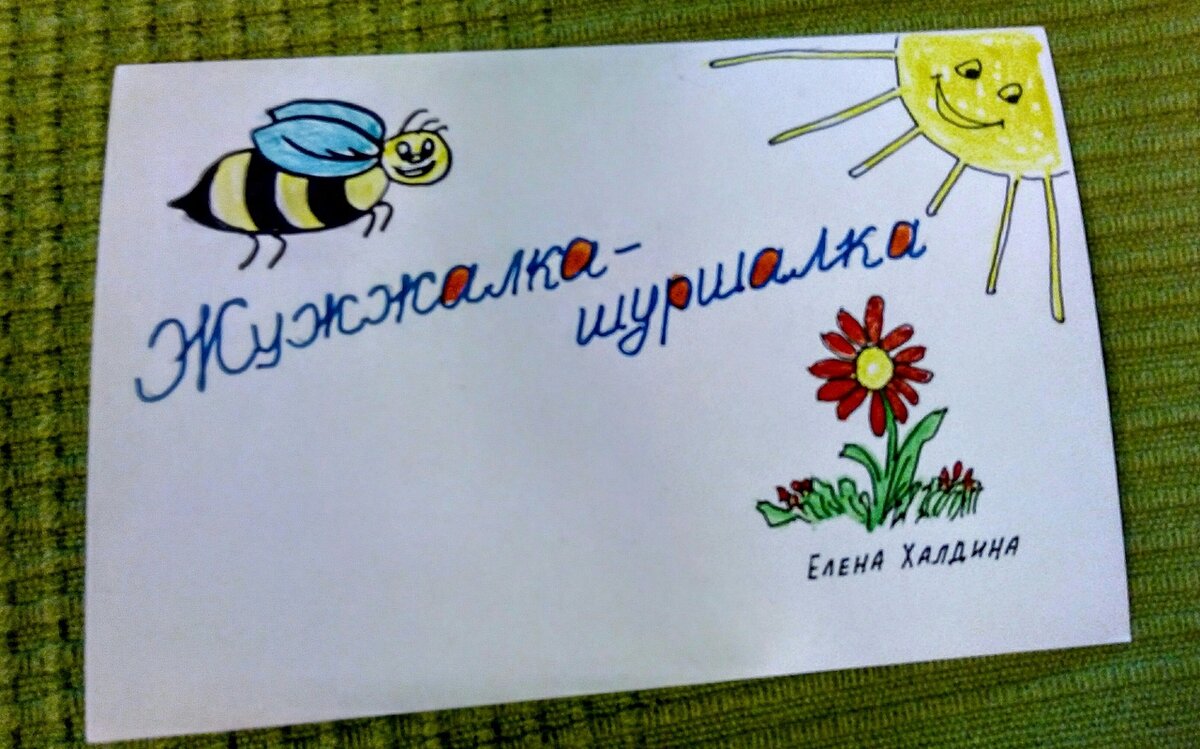 Жужжалка-
шуршалка
Елена Халдина